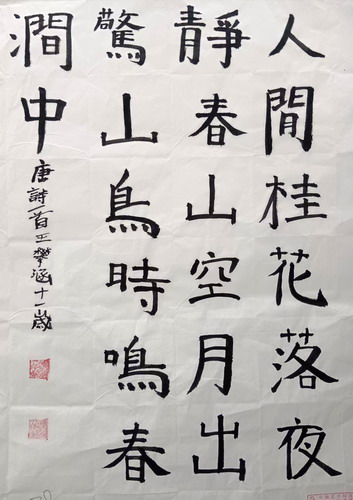 人閒桂花落夜
靜春山空月出
驚山鳥時鳴春
澗中
唐詩一首王攀涵十一歲